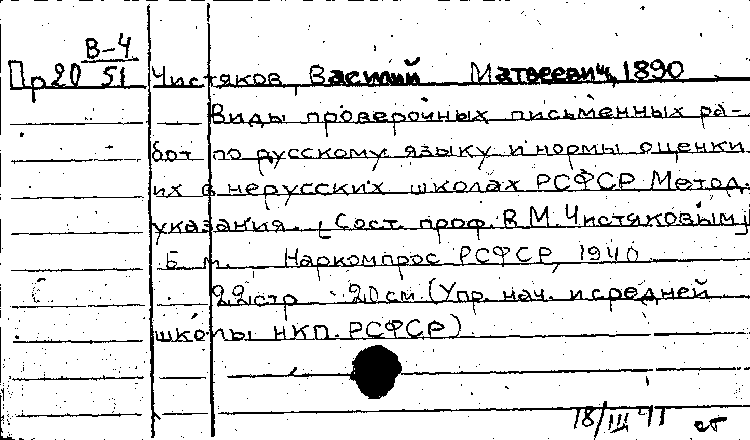 В-4
Пр20 51 Чистяков, Василий Матвеевич, 1890
Виды проверочных письменных ра-
бот по русскому языку и нормы оценки
их в нерусских школах РСФСР. Метод.
указания. [Сост. проф. В.М. Чистяковым]
Б.м., Наркомпрос РСФСР, 1940
22 стр. 20 см. (Упр. нач. и средней
школы НКП. РСФСР)
18/III 41